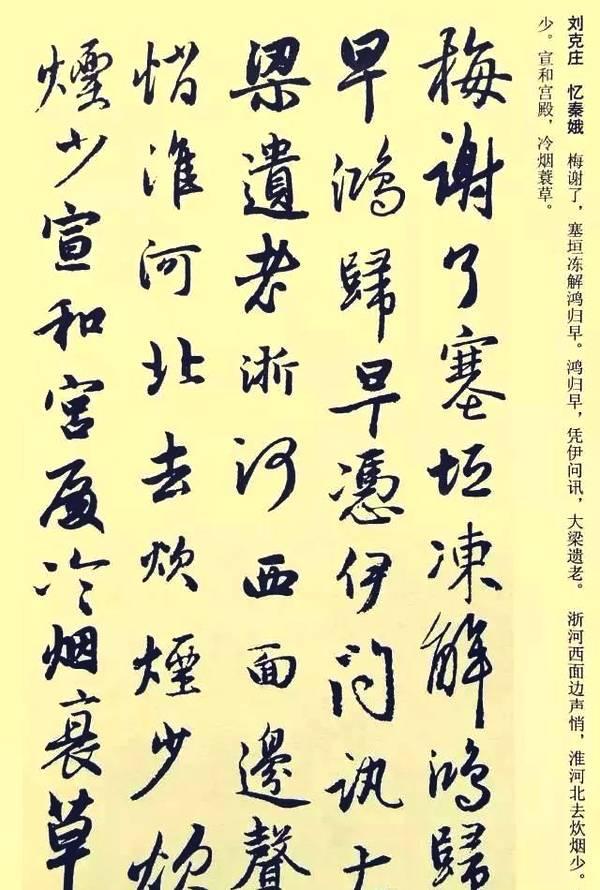 刘克庄 忆秦娥 梅谢了，塞垣冻解鸿归早。鸿归早，凭伊问讯，大梁遗老。 浙河西面边声悄，淮河北去炊烟少。
少。宣和宫殿，冷烟蓑草。
梅謝了塞垣凍解鴻歸
早鴻歸早憑伊問訊大
梁遺老浙河西面邊聲
悄淮河北去炊煙少炊
煙少宣和宮殿冷烟衰草